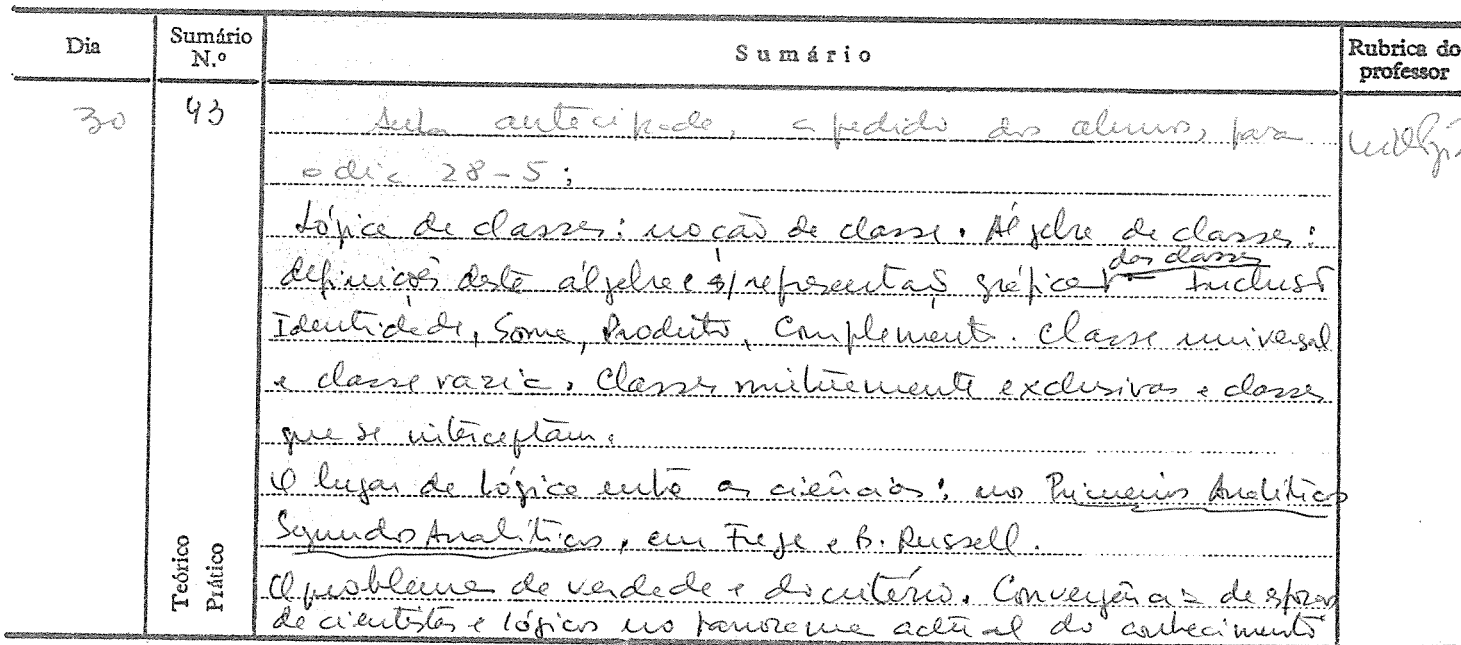 Dia
Sumário N.º
Sumário
Rubrica do professor
30
43
Aula antecipada, a pedido dos alunos, para
o dia 28-5;
Lógica de classes: noção de classe. Álgebra de classes:
definições desta álgebra e s/ representação gráfica das classes Inclusão
Identidade, Soma, Produto, Complemento. Classe universal
e classe vazia. Classes mutuamente exclusivas e classes
que se interceptam.
O lugar da Lógica entre as ciências: nos Primeiros Analíticos
Segundos Analíticos, em Frege e B. Russell.
O problema da verdade e do critério. Convergência de esforços
de cientistas e lógicos no panorama actual do conhecimento
Teórico
Prático